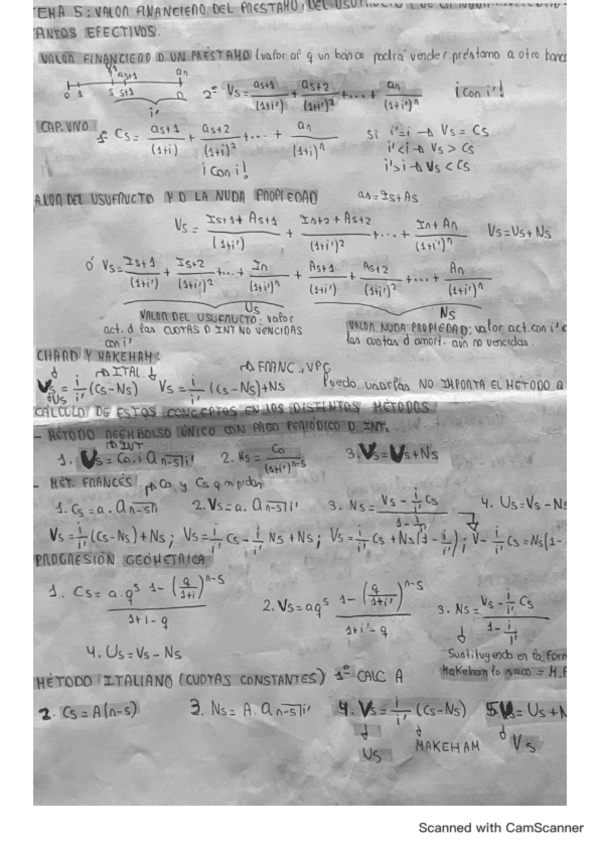 TEMA 5: VALOR FINANCIERO DEL PRESTAMO, DEL USUFRUCTO Y DE LA NUDA
TANTOS EFECTIVOS.
VALOR FINANCIERO D UN PRÉSTAMO (valor al q un banco podrá vender préstamo a otro banco
as+1 an
0 1 s s+1 n
i'
2º Vs = as+1/(1+i') + as+2/(1+i')² + ... + an/(1+i')ⁿ ¡con i'!
CAP. VIVO 1º Cs = as+1/(1+i) + as+2/(1+i)² + ... + an/(1+i)ⁿ
¡con i!
si i'=i → Vs = Cs
i'<i → Vs > Cs
i'>i → Vs < Cs
VALOR DEL USUFRUCTO Y D LA NUDA PROPIEDAD as = Is + As
Vs = Is+1 + As+1/(1+i') + Is+2 + As+2/(1+i')² + ... + In + An/(1+i')ⁿ Vs = Us + Ns
ó Vs = Is+1/(1+i') + Is+2/(1+i')² + ... + In/(1+i')ⁿ + As+1/(1+i') + As+2/(1+i')² + ... + An/(1+i')ⁿ
Us Ns
VALOR DEL USUFRUCTO: valor act. d las CUOTAS D INT NO VENCIDAS con i'
VALOR NUDA PROPIEDAD: valor act. con i' d las cuotas d amort. aún no vencidas.
CHARD Y MAKEHAM:
→ ITAL. → FRANC., VPG
Vs = i/i' (Cs-Ns) Vs = i/i' (Cs-Ns)+Ns Puedo usarlas NO IMPORTA EL METODO A
Us
CÁLCULO DE ESTOS CONCEPTOS EN LOS DISTINTOS MÉTODOS
- MÉTODO REEMBOLSO ÚNICO CON PAGO PERIÓDICO D INT.
→ INT
1. Vs = Co.i a n-s|i' 2. Ns = Co/(1+i')ⁿ⁻ˢ 3. Vs = Us + Ns
- MÉT. FRANCÉS → Co y Cs q me pidan
1. Cs = a. a n-s|i 2. Vs = a. a n-s|i' 3. Ns = Vs - i/i' Cs / 1 - i/i' 4. Us = Vs - Ns
Vs = i/i' (Cs-Ns) + Ns; Vs = i/i' Cs - i/i' Ns + Ns; Vs = i/i' Cs + Ns(1 - i/i'); V - i/i' Cs = Ns(1-
PROGRESIÓN GEOMÉTRICA
1. Cs = a.qˢ 1 - (q/1+i)ⁿ⁻ˢ / 1+i-q 2. Vs = aqˢ 1 - (q/1+i')ⁿ⁻ˢ / 1+i'-q 3. Ns = Vs - i/i' Cs / 1 - i/i'
4. Us = Vs - Ns
Sustituyendo en la form
Makeham lo saco = M.F
MÉTODO ITALIANO (CUOTAS CONSTANTES) 1º CALC A
2. Cs = A(n-s) 3. Ns = A. a n-s|i' 4. Vs = i/i' (Cs-Ns) 5. Vs = Us + N
Us MAKEHAM Vs
Scanned with CamScanner